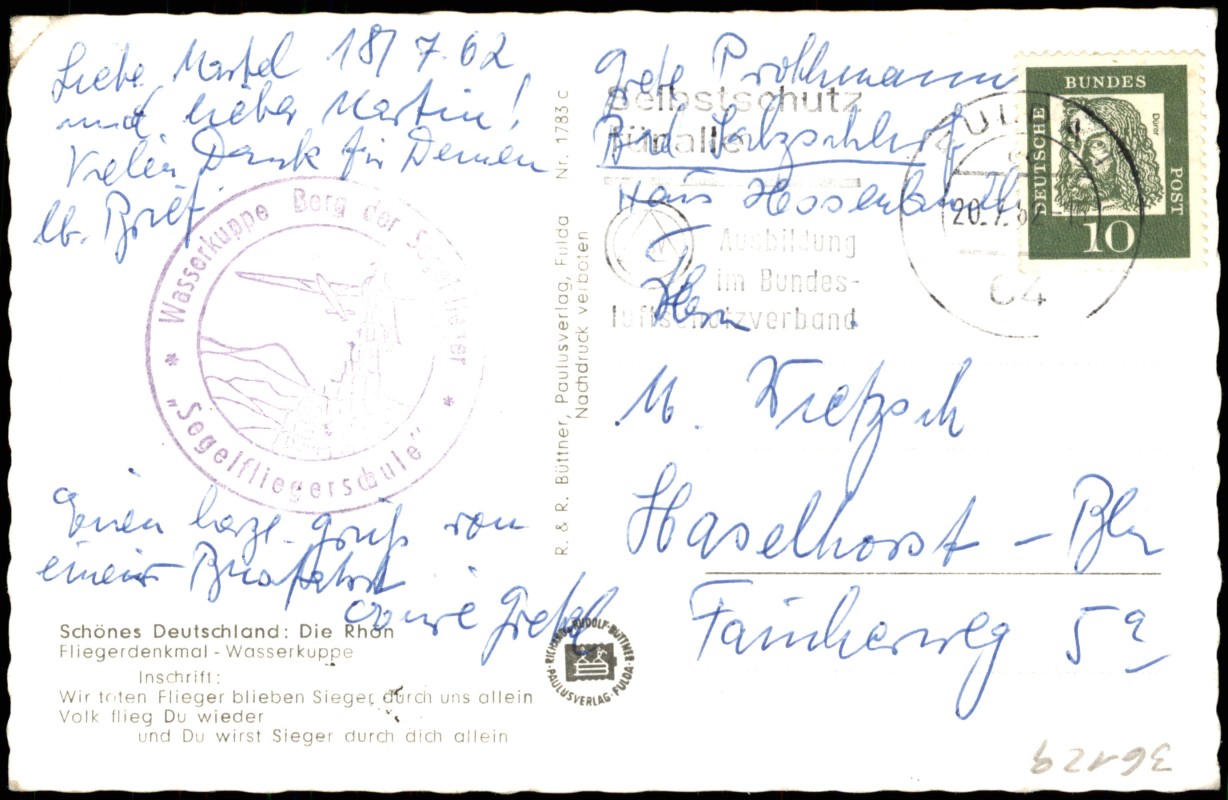 Liebe Martel 18/7.62
und lieber Martin!
Vielen Dank für Deinen
lb. Brief
Wasserkuppe Berg der Segelflieger
* „Segelfliegerschule" *
Einen herzl. Gruß von
einer Busfahrt
Eure Gretel
Schönes Deutschland: Die Rhön
Fliegerdenkmal - Wasserkuppe
Inschrift:
Wir toten Flieger blieben Sieger durch uns allein
Volk flieg Du wieder
und Du wirst Sieger durch dich allein
R. & R. Büttner, Paulusverlag, Fulda Nr. 1783 c
Nachdruck verboten
RICHARD·RUDOLF·BÜTTNER·PAULUSVERLAG·FULDA·
Grete
Bad Salzschlirf
Haus Hessenland
Selbstschutz
für alle
Ausbildung
im Bundes-
luftschutzverband
FULDA
20.7.62
64
DEUTSCHE BUNDES POST
Dürer
10
Herrn
M. Kietzsch
Haselhorst - Bln
5a
36129